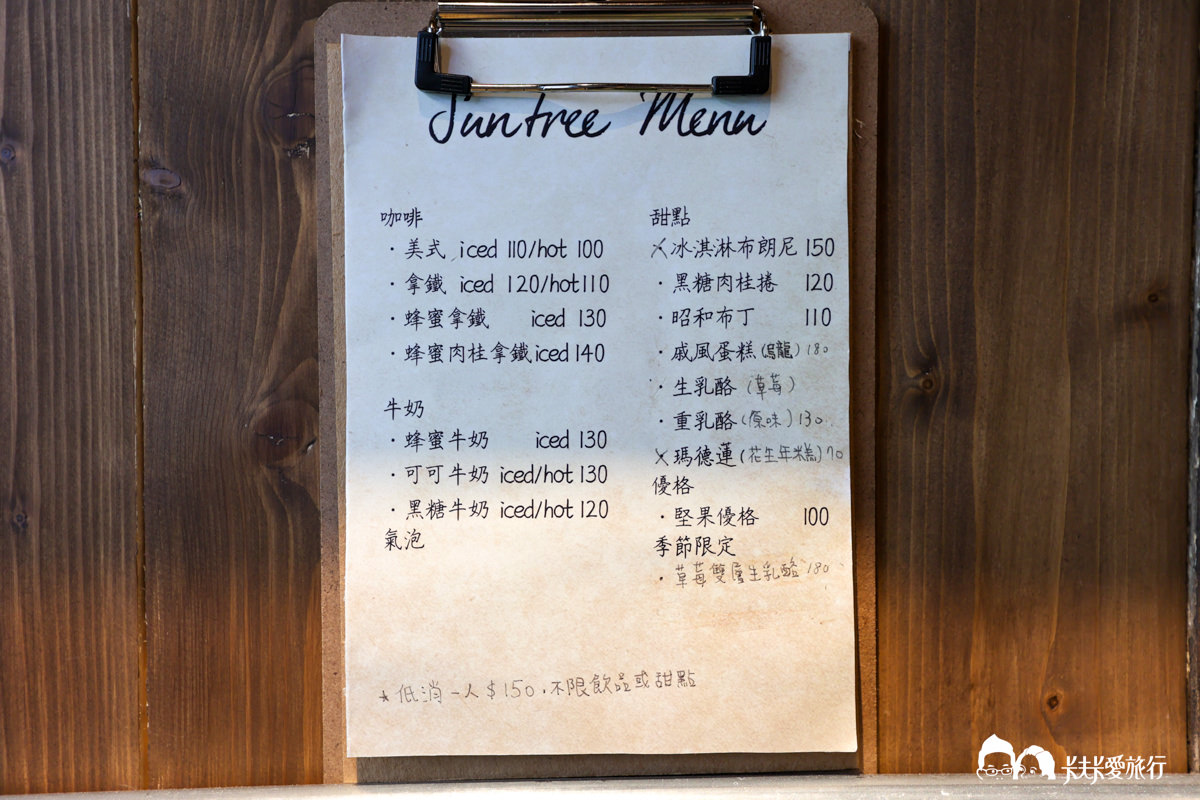 Suntree Menu
咖啡
・美式 iced 110/hot 100
・拿鐵 iced 120/hot110
・蜂蜜拿鐵 iced 130
・蜂蜜肉桂拿鐵iced 140
牛奶
・蜂蜜牛奶 iced 130
・可可牛奶 iced/hot 130
・黑糖牛奶 iced/hot 120
氣泡
甜點
×冰淇淋布朗尼 150
・黑糖肉桂捲 120
・昭和布丁 110
・戚風蛋糕(烏龍) 180
・生乳酪 (草莓)
・重乳酪(原味) 130
×瑪德蓮(花生年糕) 70
優格
・堅果優格 100
季節限定
・草莓雙層生乳酪 180
★低消一人$150,不限飲品或甜點
卡夫卡愛旅行